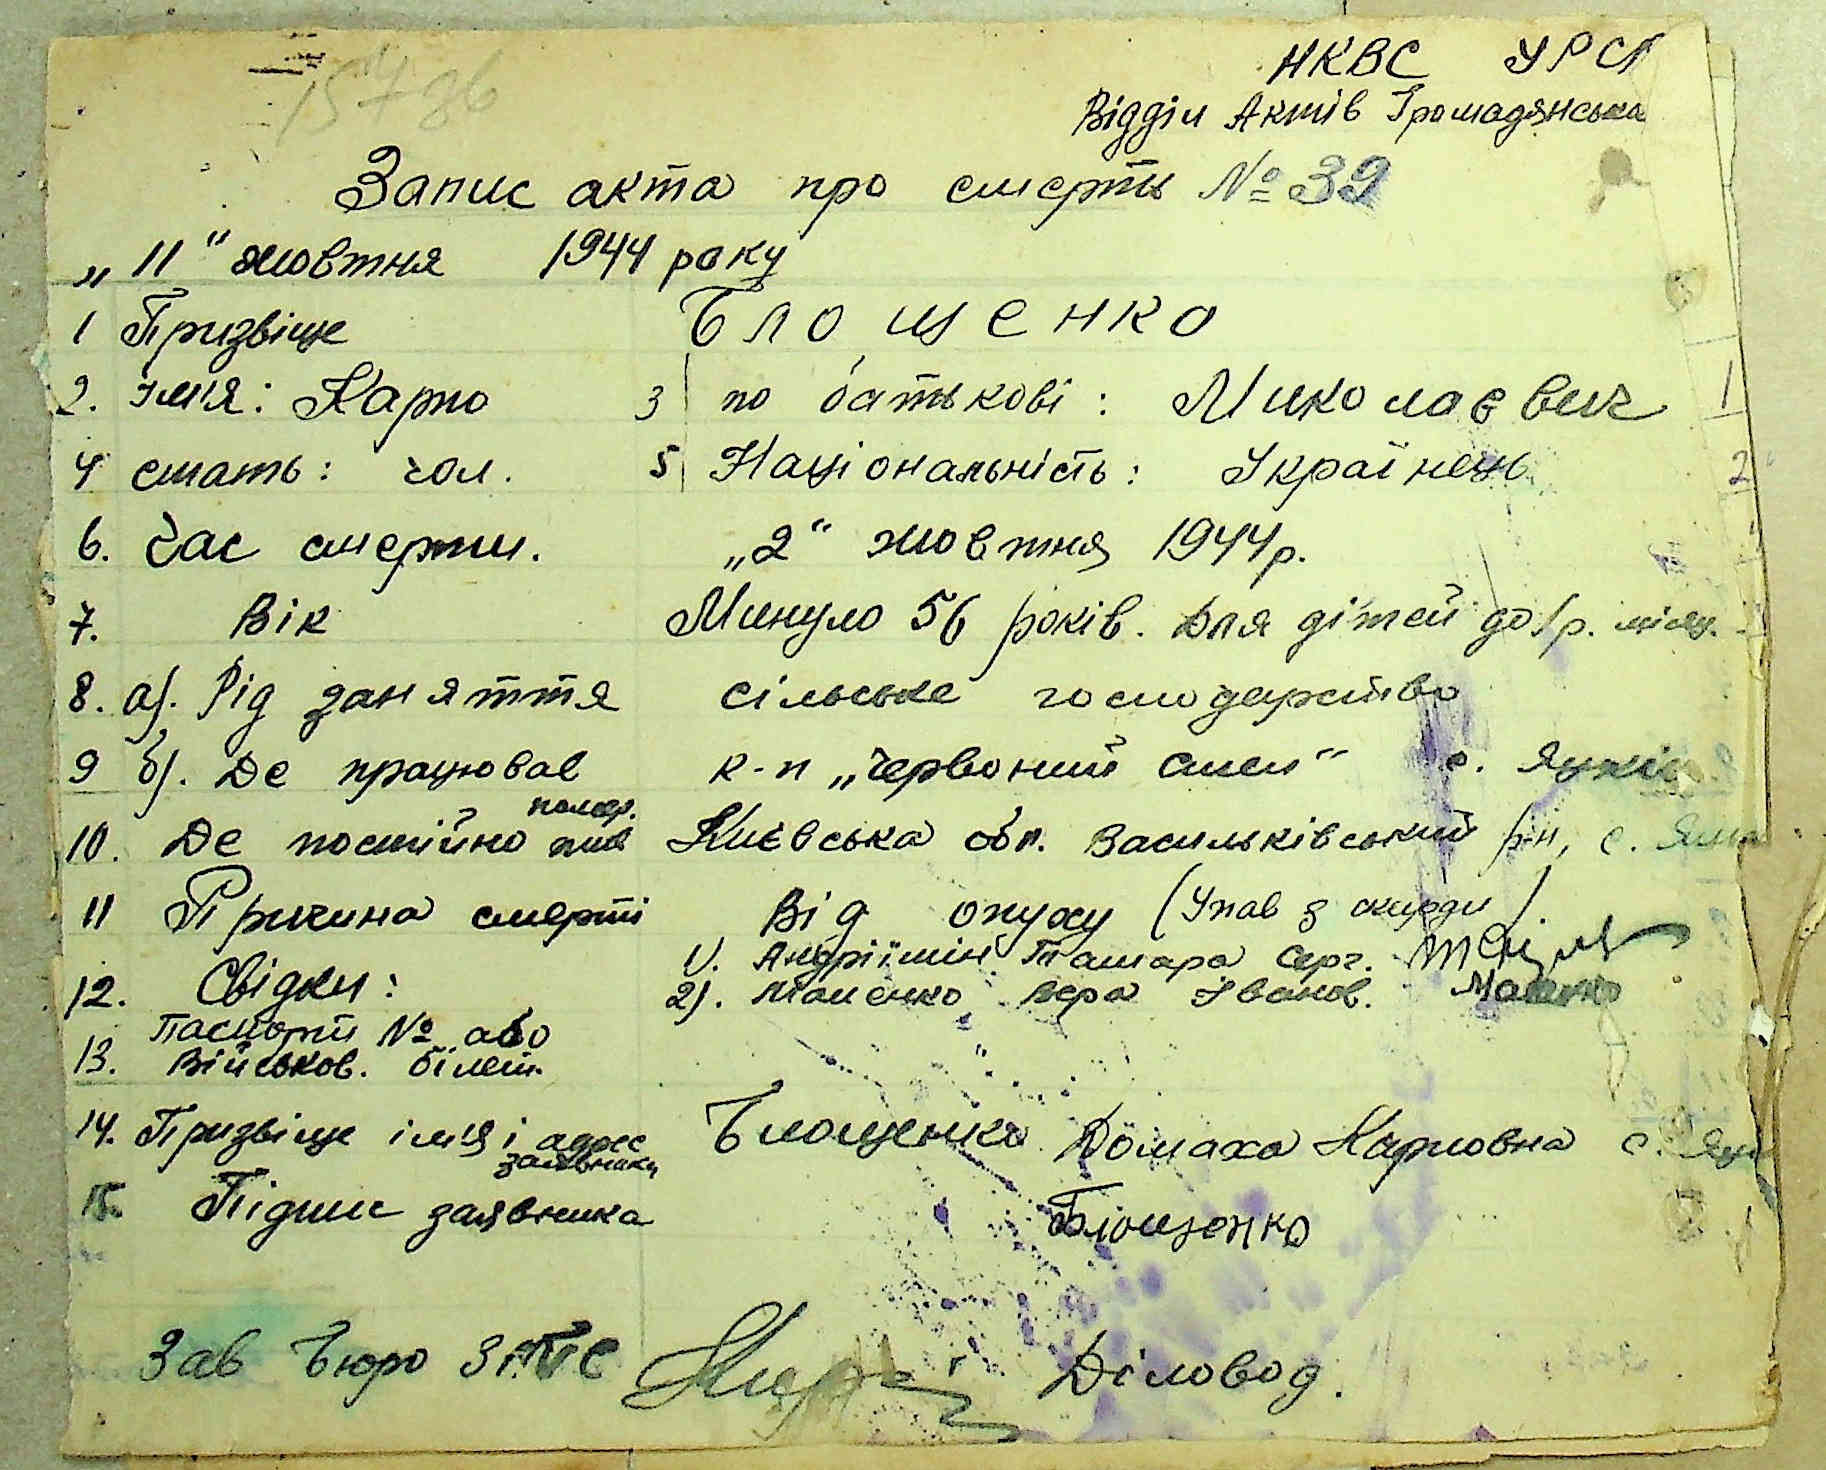 15736
НКВС УРСР
Відділ Актів Громадянська
Запис акта про смерть № 39
„11" жовтня 1944 року
1 Призвіще Блощенко
2. Імя: Карпо 3 по батькові: Миколаєвич
4 стать: чол. 5 Національність: Українець
6. Час смерти. „2" жовтня 1944 р.
7. Вік Минуло 56 років. Для дітей до 1 р. місяц.
8. а). Рід заняття сільське господарство
9 б). Де працював к-п „Червоний С" с.
10. Де постійно помер. жив Києвська обл. Васильківський р-н, с.
11 Причина смерті Від опуху (Упав з скирди).
12. Свідки: 1). Тамара Серг.
2). Маценко Вера Іванов.
13. Паспорт № або
Військов. білет.
14. Призвіще імя і адрес заявника Блощенко Домаха Карповна с.
15. Підпис заявника Блощенко
Зав Бюро ЗАГС Діловод.